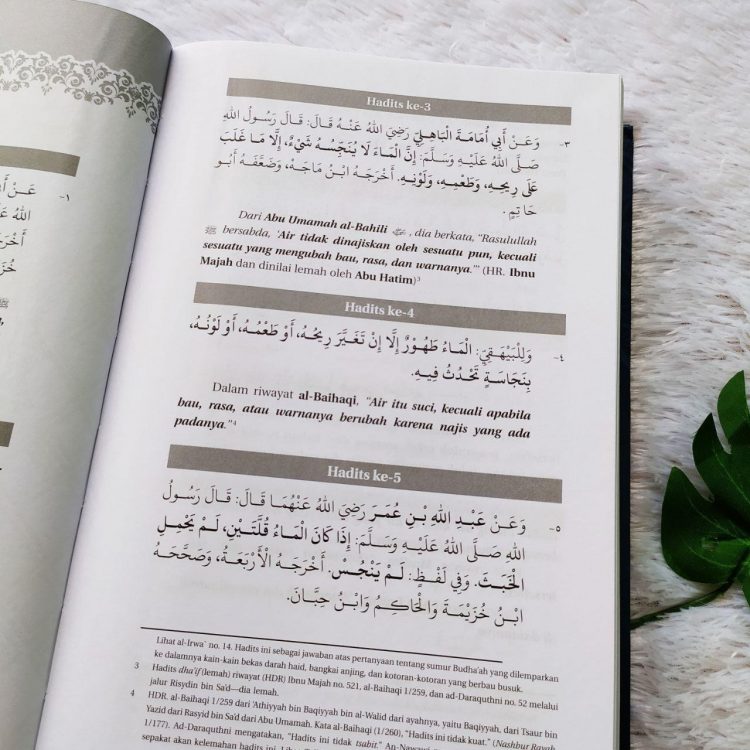 عَنْ أَبِي
الله عَ
أَخْرَ
خُزَيْ
١-
Hadits ke-3
٣- وَعَنْ أَبِي أُمَامَةَ الْبَاهِلِيِّ رَضِيَ اللهُ عَنْهُ قَالَ: قَالَ رَسُولُ اللهِ
صَلَّى اللهُ عَلَيْهِ وَسَلَّمَ: إِنَّ الْمَاءَ لَا يُنَجِّسُهُ شَيْءٌ، إِلَّا مَا غَلَبَ
عَلَى رِيحِهِ، وَطَعْمِهِ، وَلَوْنِهِ. أَخْرَجَهُ ابْنُ مَاجَهْ، وَضَعَّفَهُ أَبُو
حَاتِمٍ.
Dari Abu Umamah al-Bahili ﵁, dia berkata, “Rasulullah
ﷺ bersabda, ‘Air tidak dinajiskan oleh sesuatu pun, kecuali
sesuatu yang mengubah bau, rasa, dan warnanya.’“ (HR. Ibnu
Majah dan dinilai lemah oleh Abu Hatim)³
Hadits ke-4
٤- وَلِلْبَيْهَقِيِّ: الْمَاءُ طَهُوْرٌ إِلَّا إِنْ تَغَيَّرَ رِيحُهُ، أَوْ طَعْمُهُ، أَوْ لَوْنُهُ،
بِنَجَاسَةٍ تَحْدُثُ فِيهِ.
Dalam riwayat al-Baihaqi, “Air itu suci, kecuali apabila
bau, rasa, atau warnanya berubah karena najis yang ada
padanya.”⁴
Hadits ke-5
٥- وَعَنْ عَبْدِ اللهِ بْنِ عُمَرَ رَضِيَ اللهُ عَنْهُمَا قَالَ: قَالَ رَسُولُ
اللهِ صَلَّى اللهُ عَلَيْهِ وَسَلَّمَ: إِذَا كَانَ الْمَاءُ قُلَّتَيْنِ، لَمْ يَحْمِلِ
الْخَبَثَ. وَفِي لَفْظٍ: لَمْ يَنْجُسْ. أَخْرَجَهُ الْأَرْبَعَةُ، وَصَحَّحَهُ
ابْنُ خُزَيْمَةَ وَالْحَاكِمُ وَابْنُ حِبَّانَ.
Lihat al-Irwa` no. 14. Hadits ini sebagai jawaban atas pertanyaan tentang sumur Budha'ah yang dilemparkan
ke dalamnya kain-kain bekas darah haid, bangkai anjing, dan kotoran-kotoran yang berbau busuk.
3 Hadits dha'if (lemah) riwayat (HDR) Ibnu Majah no. 521, al-Baihaqi 1/259, dan ad-Daraquthni no. 52 melalui
jalur Risydin bin Sa'd—dia lemah.
4 HDR. al-Baihaqi 1/259 dari 'Athiyyah bin Baqiyyah bin al-Walid dari ayahnya, yaitu Baqiyyah, dari Tsaur bin
Yazid dari Rasyid bin Sa'd dari Abu Umamah. Kata al-Baihaqi (1/260), “Hadits ini tidak kuat.” (Nashbur Rayah
1/177). Ad-Daraquthni mengatakan, “Hadits ini tidak tsabit.” An-Nawawi
sepakat akan kelemahan hadits ini.